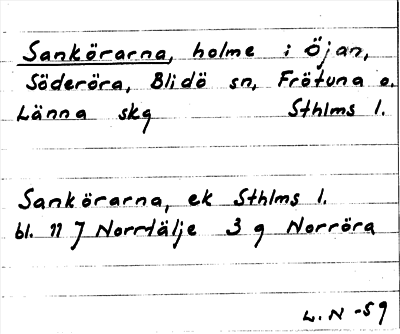 Sankörarna, holme i Öjan,
Söderöra, Blidö sn, Frötuna o.
Länna skg Sthlms l.
Sankörarna, ek Sthlms l.
bl. 11 J Norrtälje 3 g Norröra
L. N -59